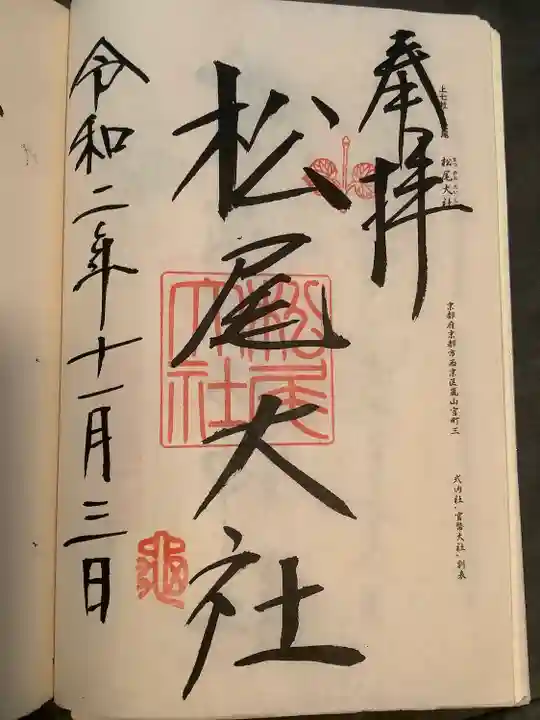 奉拝
上七社
松尾大社
京都府京都市西京区嵐山宮町三
式内社・官幣大社・別表
松尾大社
松尾大社
令和二年十一月三日